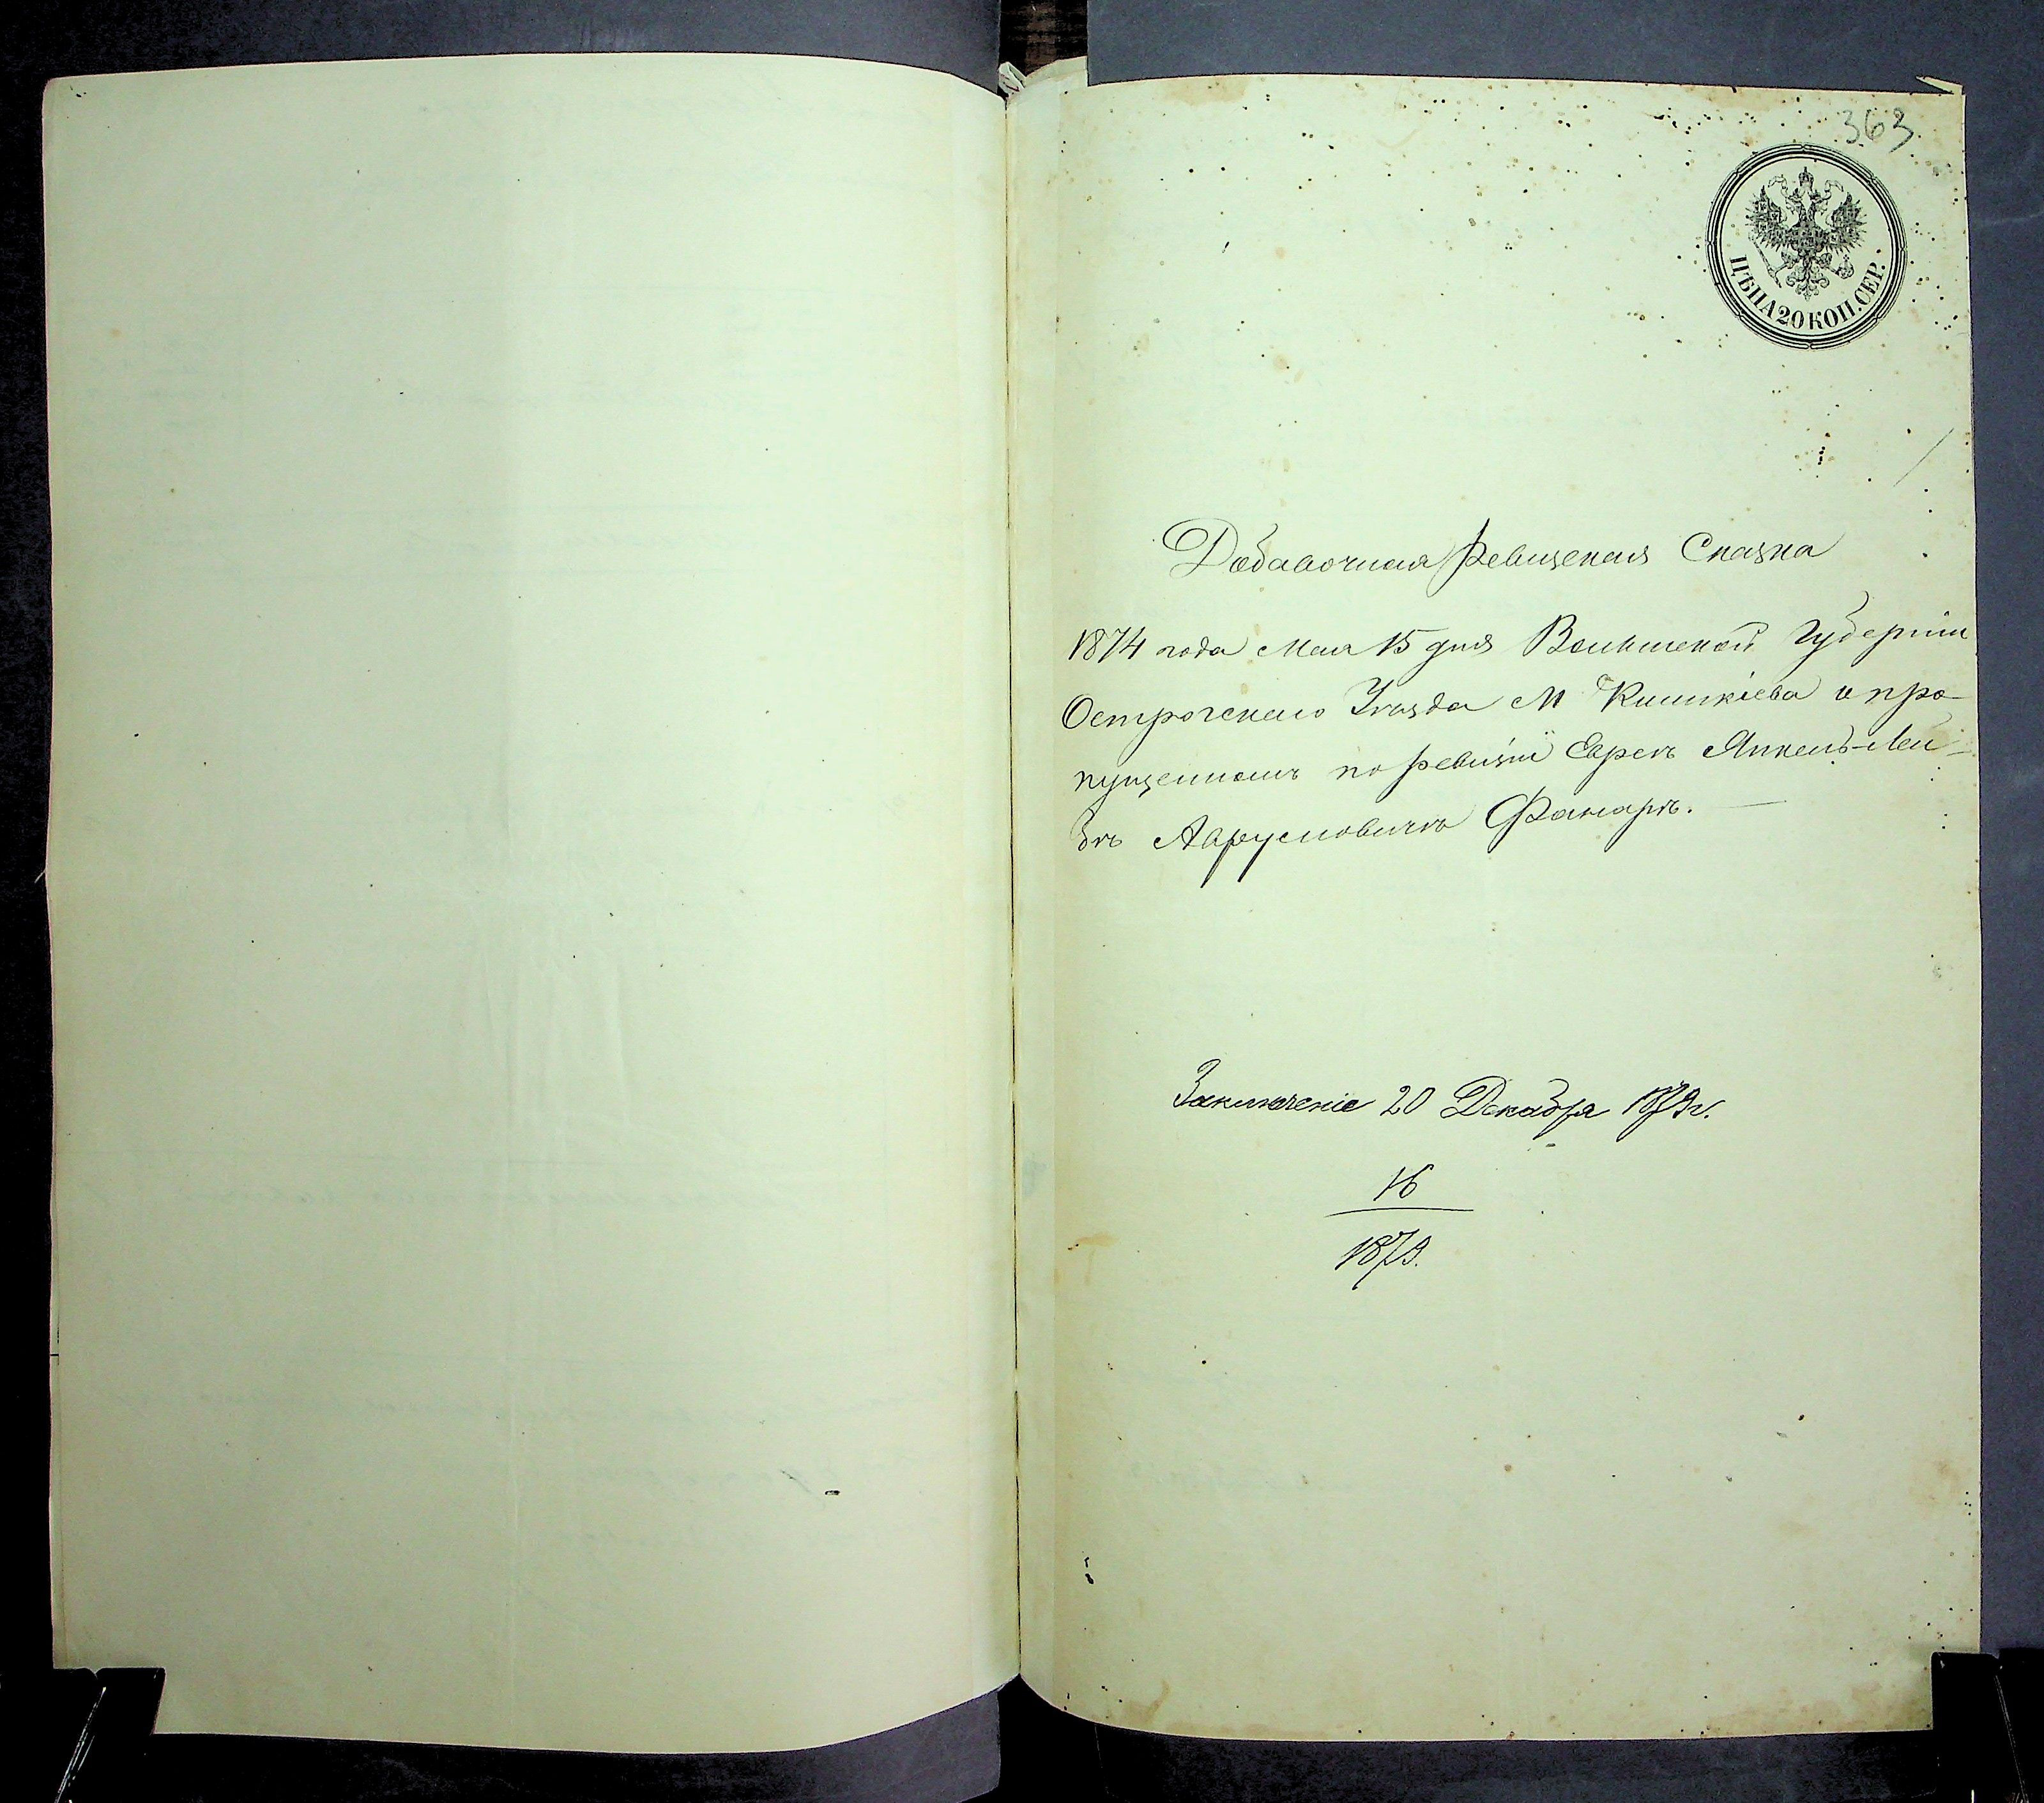 363
ЦѢНА 20 КОП. СЕР.
Добавочная Ревизская Сказка
1874 года Мая 15 дня Волынской Губерніи
Острогскаго Уѣзда М Кишкіева о про-
пущенномъ по ревизіи Евреѣ Янкель-Лей-
бѣ Аврумовичѣ Фанарѣ.
Заключеніе 20 Декабря 1879 г.
16
1879.